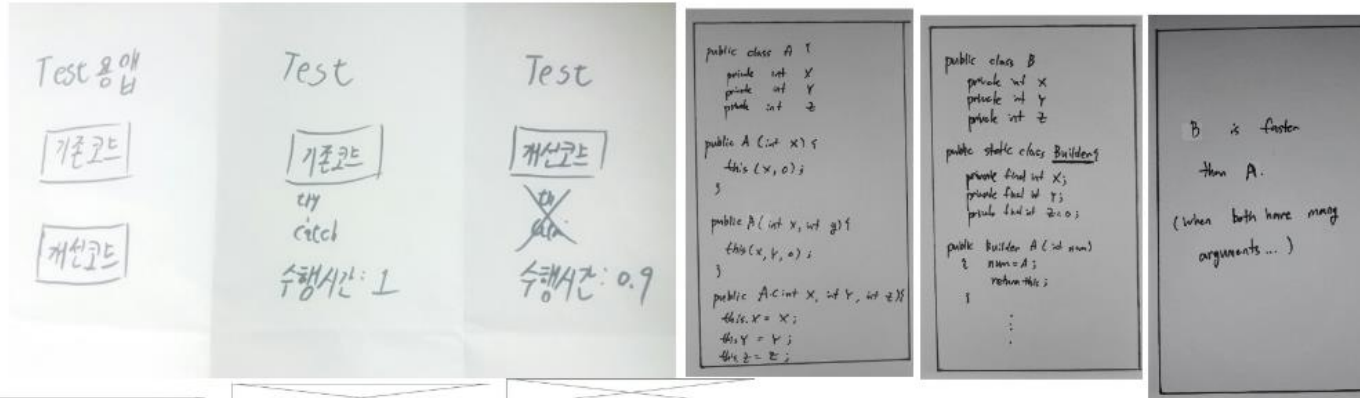 Test용 앱
기존코드
개선코드
Test
기존코드
try
catch
수행시간: 1
Test
개선코드
수행시간: 0.9
public class A {
private int X
private int Y
private int Z
public A (int X) {
this (X, 0);
}
public A ( int X, int y) {
this (X, Y, 0);
}
public A (int X, int Y, int Z) {
this.X = X;
this.Y = Y;
this.Z = Z;
public class B
private int X
private int Y
private int Z
public static class Builder {
private final int X;
private final int Y;
private final int Z=0;
public Builder A (int num)
{ num = A;
return this;
}
B is faster
than A.
(when both have many
arguments...)